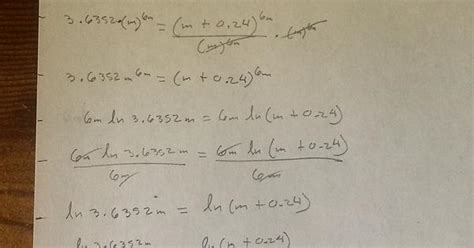 - 3.6352·(m)^6m = (m + 0.24)^6m / (m)^6m · (m)^6m
- 3.6352m^6m = (m + 0.24)^6m
- 6m ln 3.6352m = 6m ln (m + 0.24)
- 6m ln 3.6352m / 6m = 6m ln (m + 0.24) / 6m
- ln 3.6352m = ln (m + 0.24)
ln 3.6352m ln (m + 0.24)